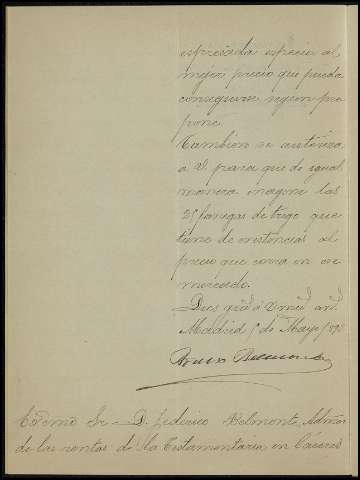 espresada especie al
mejor precio que pueda
conseguirse, segun pro
pone.
Tambien se autoriza
a V. para que de igual
manera enagene las
25 fanegas de trigo que
tiene de existencias al
precio que corra en ese
mercado.
Dios gūe á V. muchos
Madrid 1º de Mayo
Sr. D. Federico Belmonte, Admor
de las rentas de la Testamentaría en Cáceres